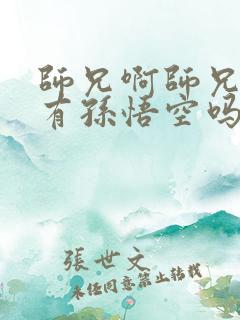 師兄啊師兄
有孫悟空吗
張世文
未经同意禁止转载